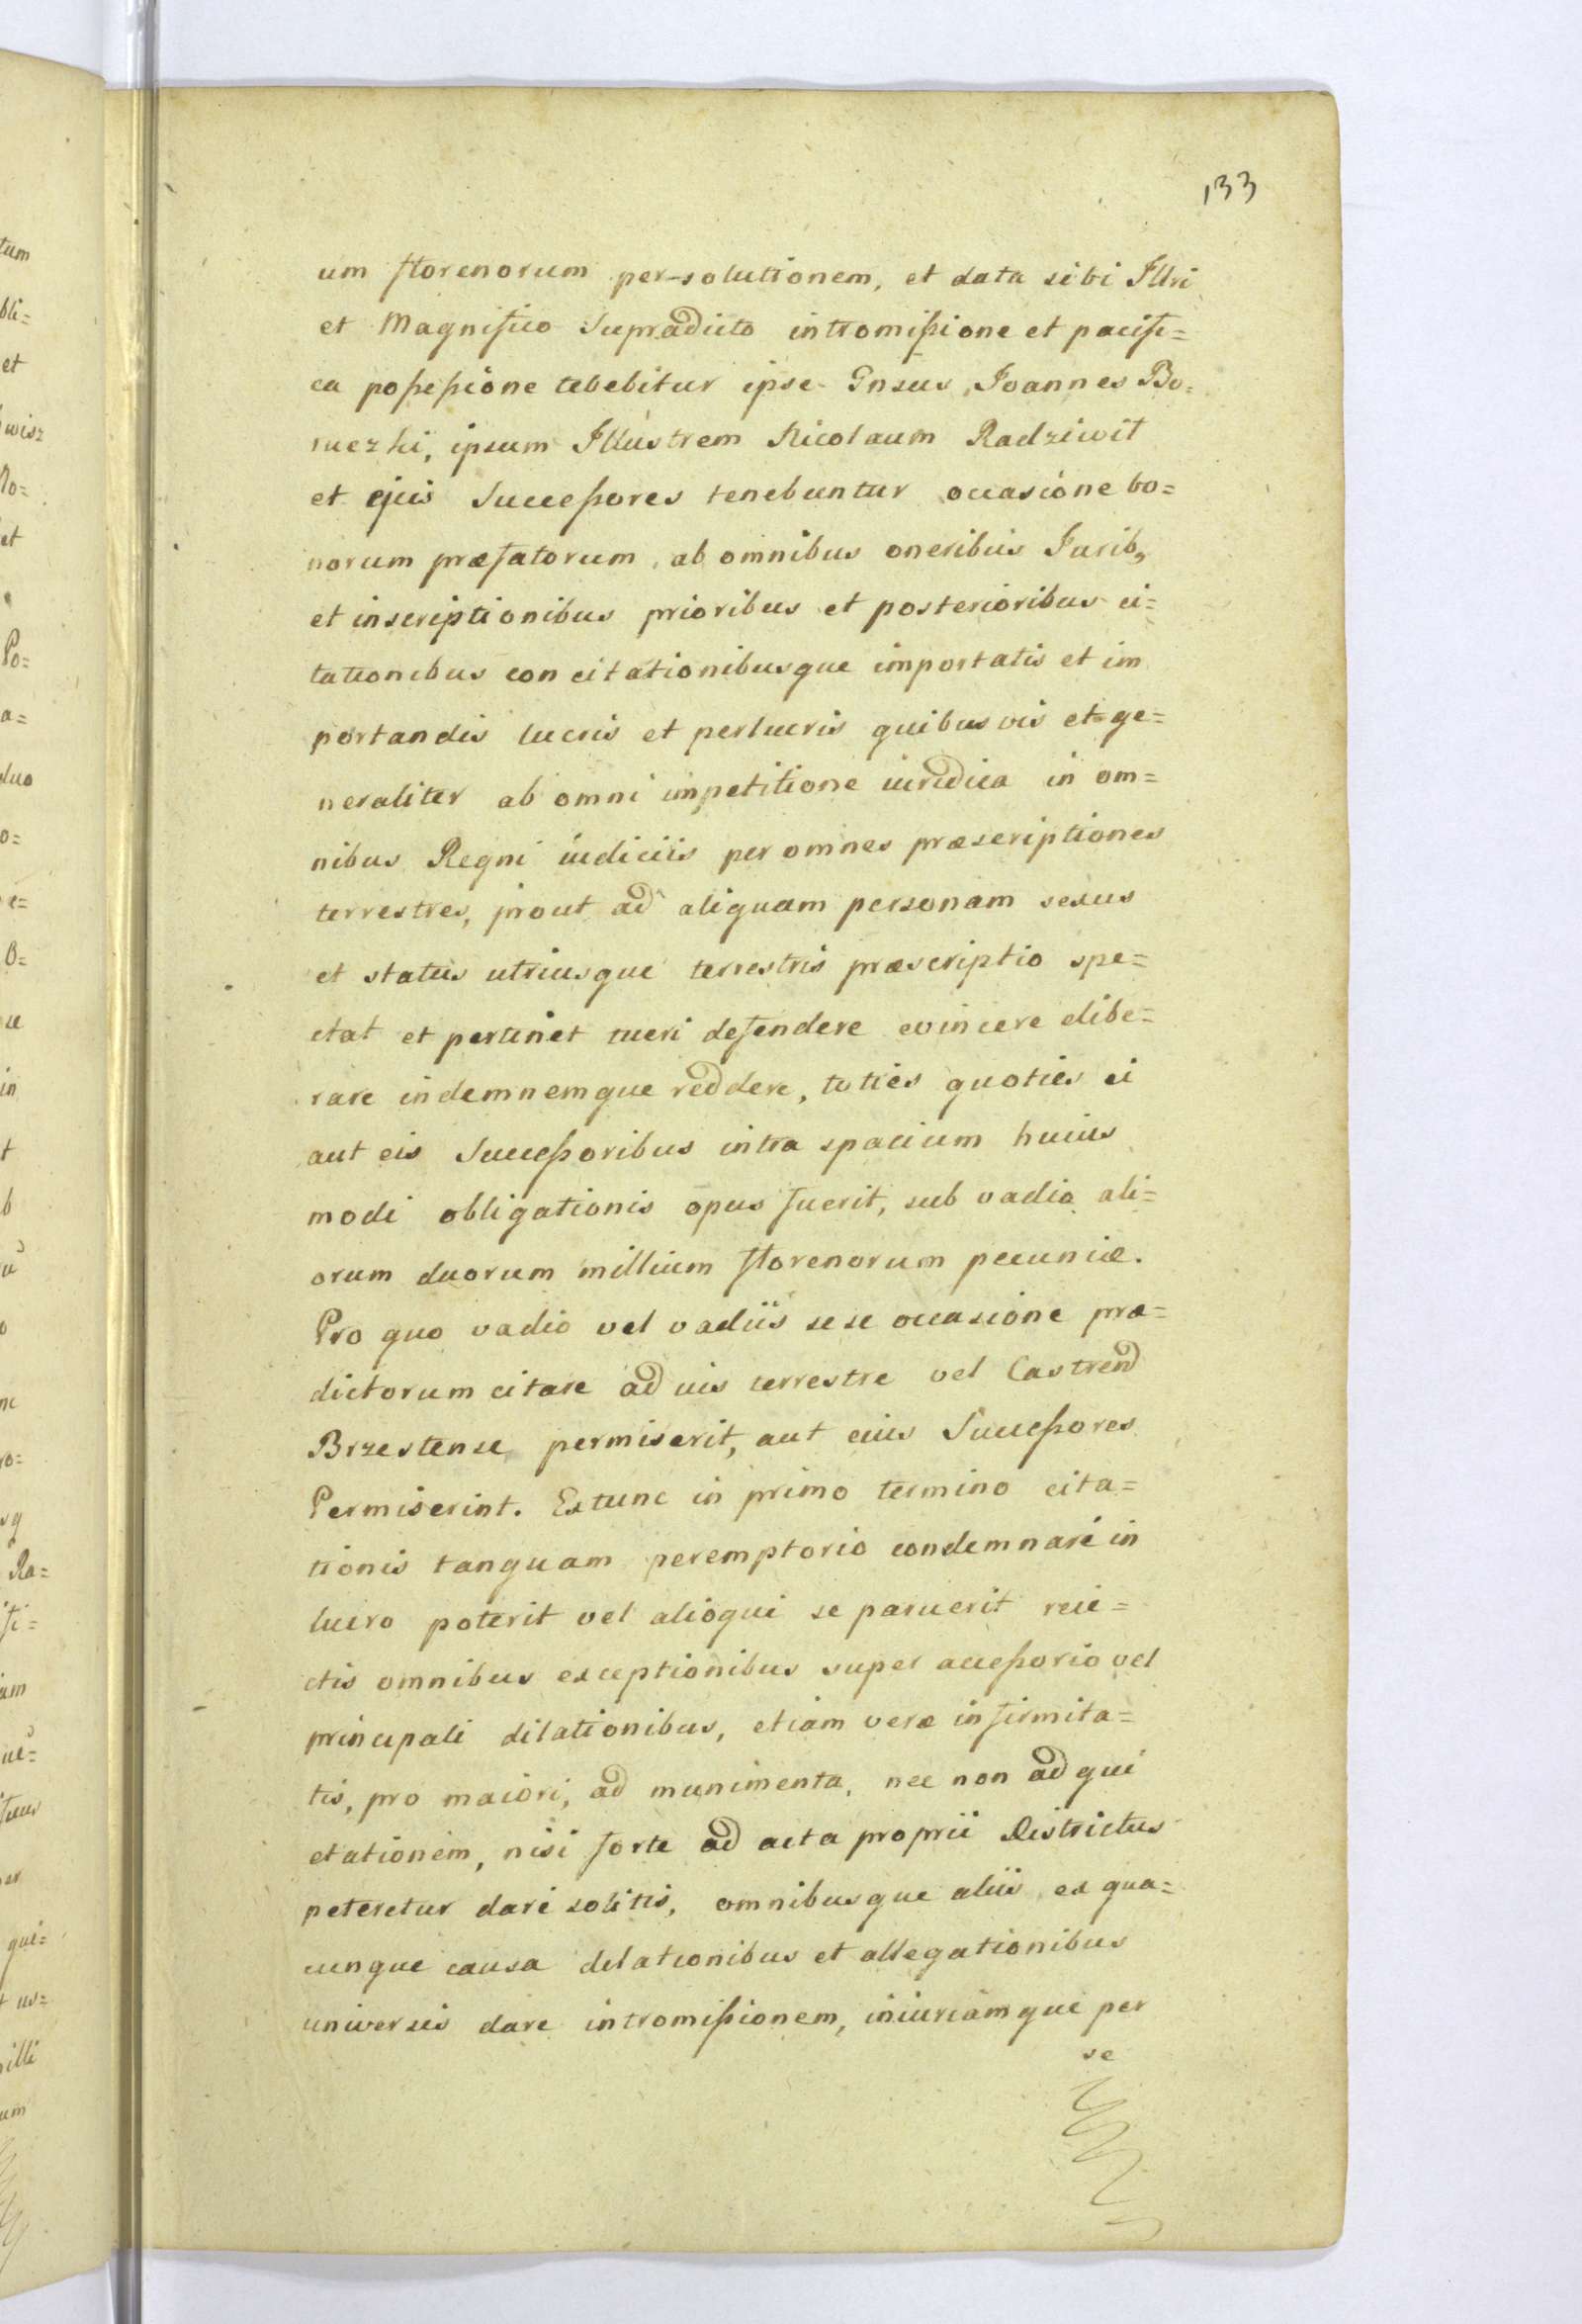 133
um florenorum per-solutionem, et data sibi Illri
et Magnifico Supradicto intromißione et pacifi=
ca poßeßione tebebitur ipse Gnsus, Joannes Bo=
ruezki, ipsum Illustrem Nicolaum Radziwit
et ejus Succeßores tenebuntur occasione bo=
norum præfatorum, ab omnibus oneribus Jurib,
et inscriptionibus prioribus et posterioribus ci=
tationibus con citationibusque importatis et im
portandis lucris et perlucris quibusvis et ge=
neraliter ab omni impetitione iuridica in om=
nibus Regni iudiciis per omnes præscriptiones
terrestres, prout ad aliquam personam sexus
et status utriusque terrestris præscriptio spe=
ctat et pertinet tueri defendere evincere elibe=
rare indemnemque reddere, toties quoties ei
aut eis Succeßoribus intra spacium huius
modi obligationis opus fuerit, sub vadio ali=
orum duorum millium florenorum pecuniæ.
Pro quo vadio vel vadiis sese occasione præ=
dictorum citare ad ius terrestre vel Castrend
Brzestense permiserit, aut eius Succeßores
Permiserint. Extunc in primo termino cita=
tionis tanquam peremptorio condemnari in
lucro poterit vel alioqui se paruerit reie=
ctis omnibus exceptionibus super acceßorio vel
principali dilationibus, etiam veræ infirmita=
tis, pro maiori, ad munimenta, nec non ad qui
etationem, nisi forte ad acta proprii Districtus
peteretur dari solitis, omnibusque aliis ex qua=
cunque causa dilationibus et allegationibus
universis dare intromißionem, iniuriamque per
se